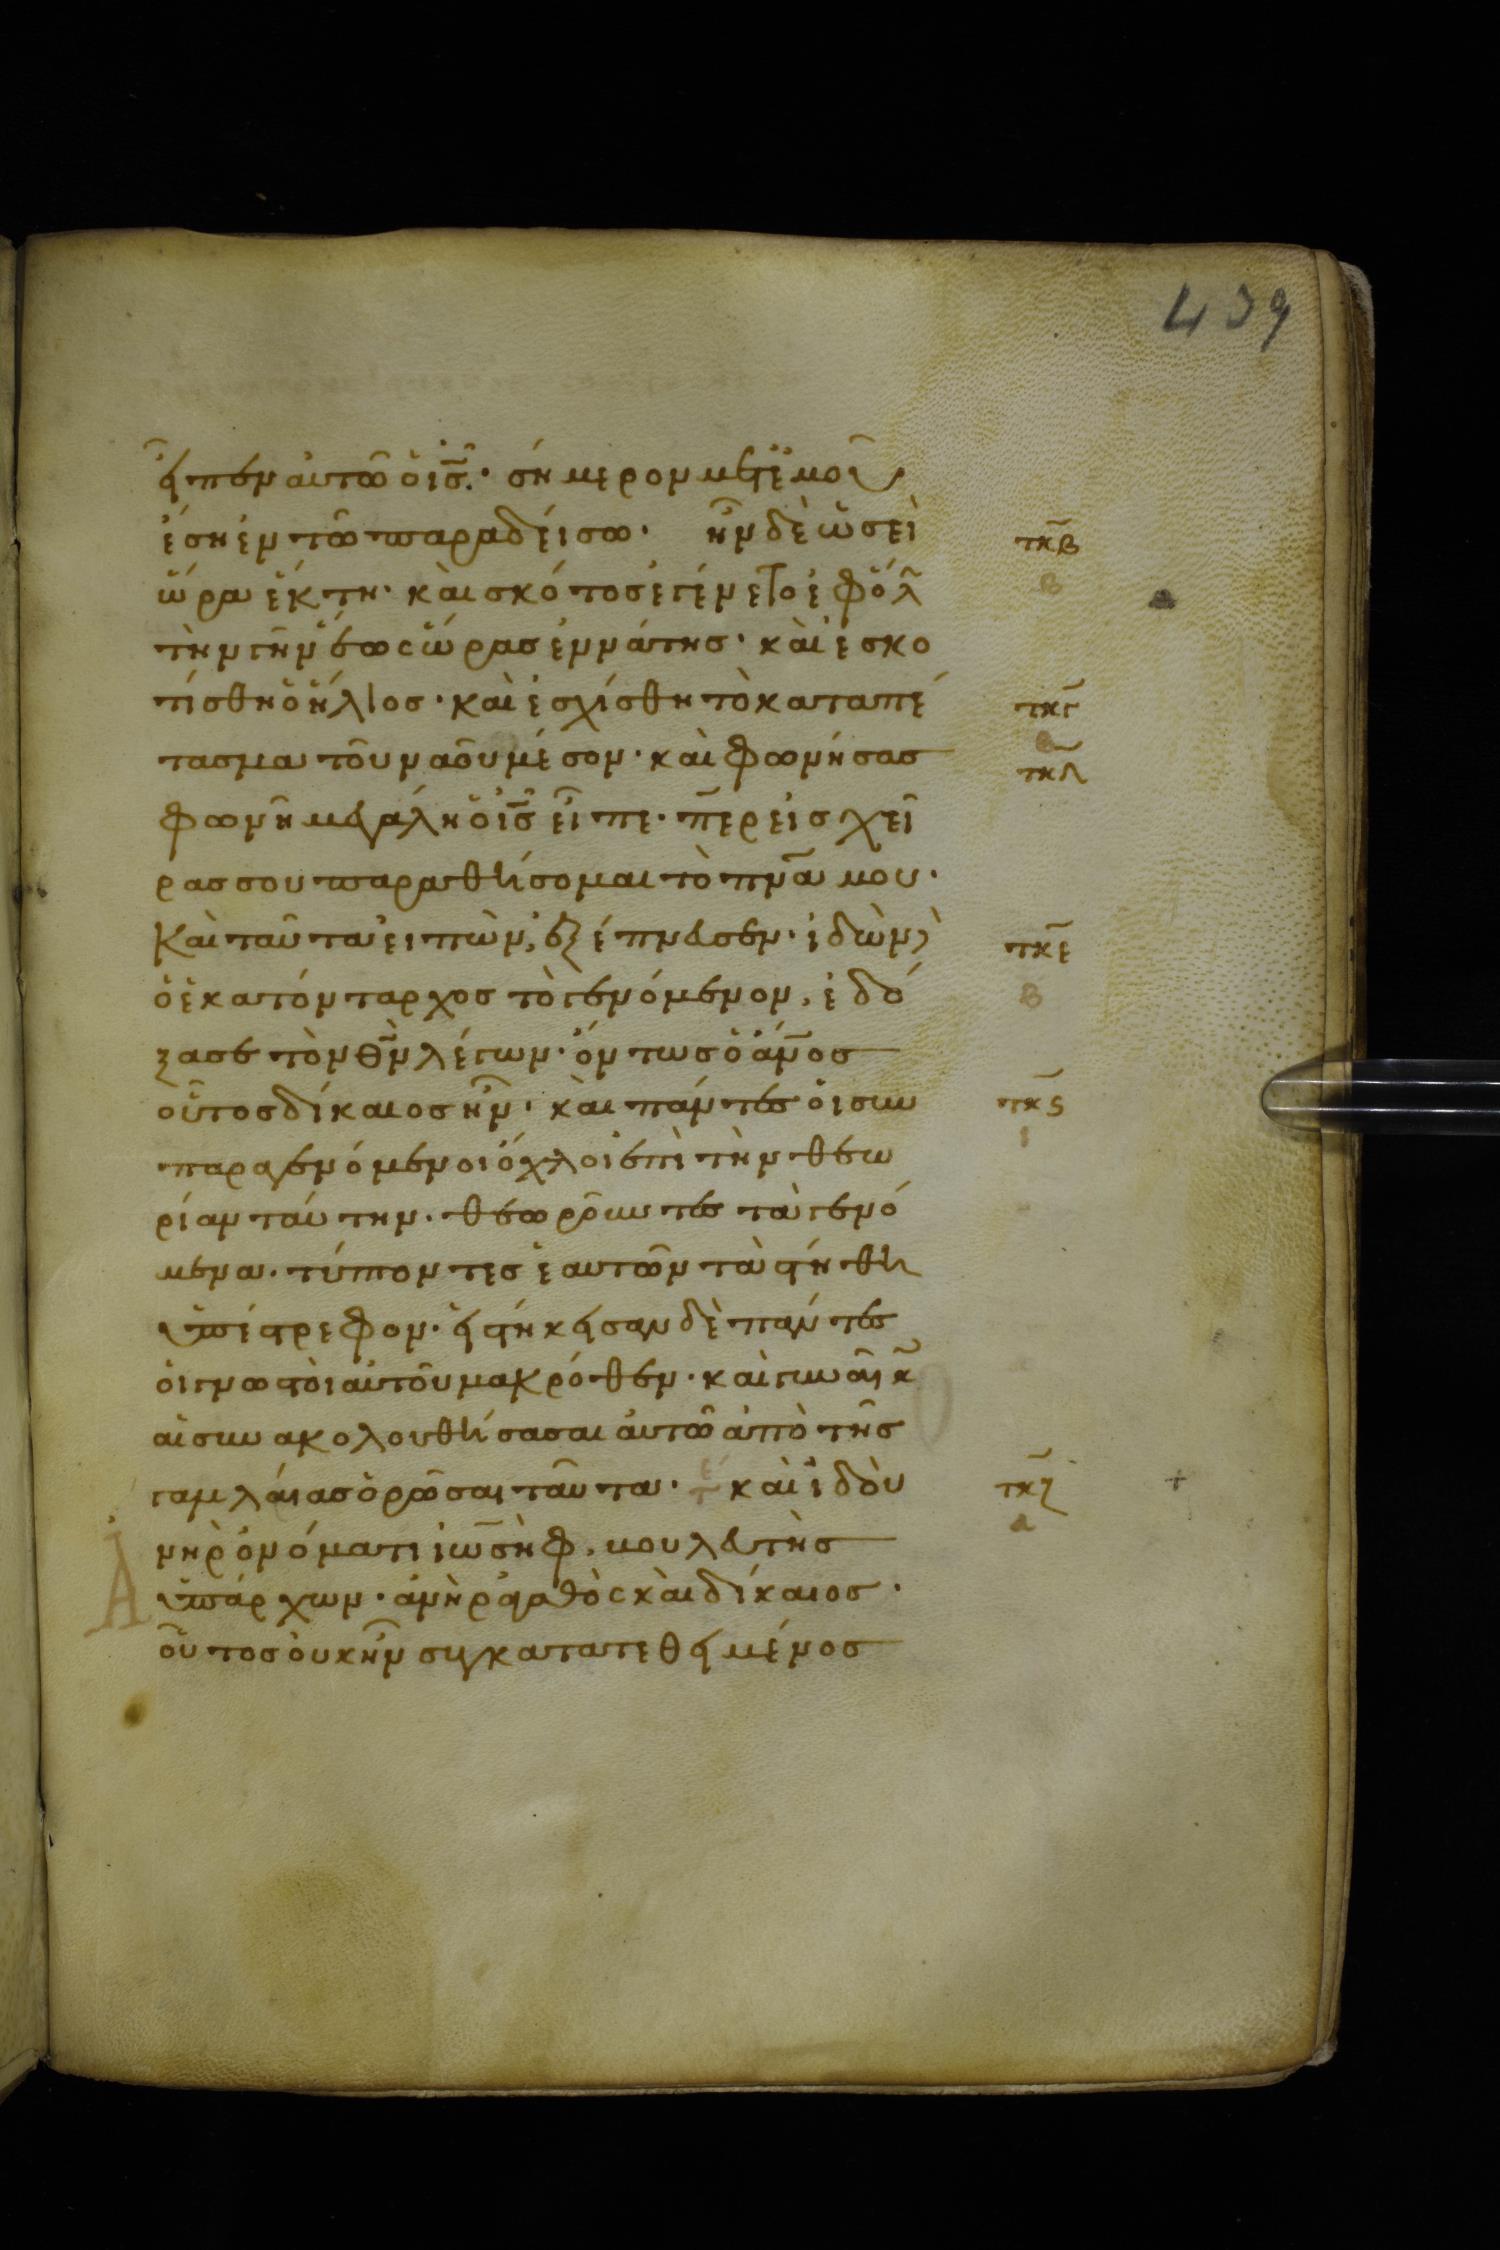 439
εἶπεν αὐτῶ ὁ ι̅ς̅· σήμερον μετ' ἐμοῦ
ἔση ἐν τῶ παραδείσω· ἦν δὲ ὡσεὶ
τκβ
β
ὥρα ἕκτη· καὶ σκότος ἐγένετο ἐφ' ὅλ
τὴν γῆν ἕως ὥρας ἐννάτης· καὶ ἐσκο
τίσθη ὁ ἥλιος· καὶ ἐσχίσθη τὸ καταπέ
τκγ
τασμα τοῦ ναοῦ μέσον· καὶ φωνήσας
τκδ
φωνῆ μεγάλη ὁ ι̅ς̅ εἶπε· π̅ερ εἰς χεῖ
ρας σου παραθήσομαι τὸ πν̅α μου·
Καὶ ταῦτα εἰπὼν, ἐξέπνευσεν· ἰδὼν δὲ
τκε
ὁ ἑκατόνταρχος τὸ γενόμενον, ἐδό
β
ξασε τὸν θ̅ν̅ λέγων· ὄντως ὁ ἄν̅ος
οὗτος δίκαιος ἦν· καὶ πάντες οἱ συν
τκς
ι
παραγενόμενοι ὄχλοι ἐπὶ τὴν θεω
ρίαν ταύτην· θεωροῦντες τὰ γενό
μενα· τύπτοντες ἑαυτῶν τὰ στήθη
ὑπέστρεφον· εἱστήκεισαν δὲ πάντες
οἱ γνωστοὶ αὐτοῦ μακρόθεν· καὶ γυναῖκ
αἱ συνακολουθήσασαι αὐτῶ ἀπὸ τῆς
γαλιλαίας ὁρῶσαι ταῦτα· καὶ ἰδοὺ
τκζ
α
ἀνὴρ ὀνόματι ἰωσὴφ, βουλευτὴς
ὑπάρχων· ἀνὴρ ἀγαθὸς καὶ δίκαιος·
οὗτος οὐκ ἦν συγκατατεθειμένος